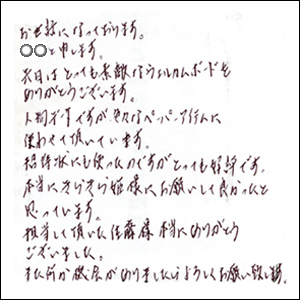 お世話になっております。
○○と申します。
先日はとっても素敵なウェルカムボードを
ありがとうございます。
人前式ですが ペーパーアイテムに
使わせて頂いています。
招待状にも使ったのですがとっても好評です。
本当にきらきら姫様にお願いして良かったと
思っています。
担当して頂いた佐藤様 本当にありがとう
ございました。
また何か機会がありましたらよろしくお願い致します。